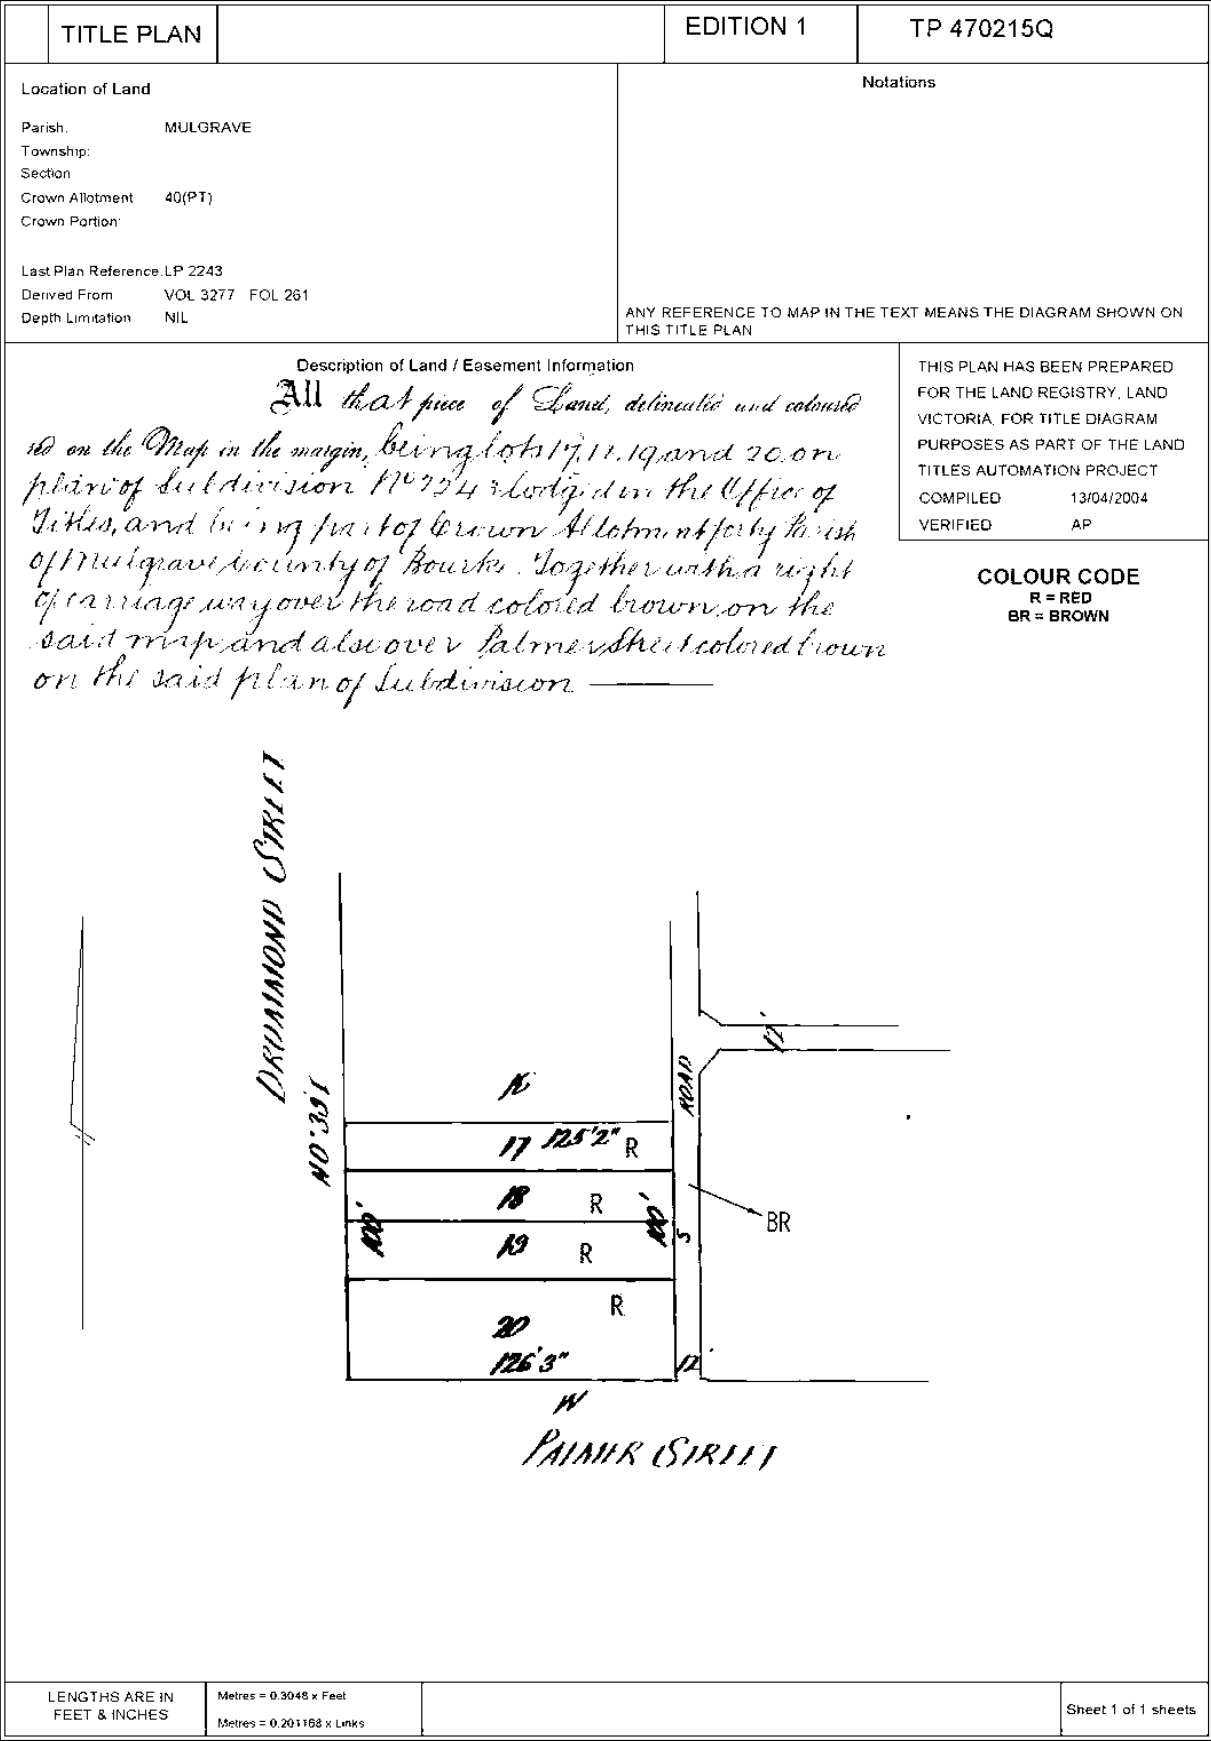 TITLE PLAN
EDITION 1
TP 470215Q
Location of Land
Parish: MULGRAVE
Township:
Section
Crown Allotment 40(PT)
Crown Portion
Last Plan Reference LP 2243
Derived From VOL 3277 FOL 261
Depth Limitation NIL
Notations
ANY REFERENCE TO MAP IN THE TEXT MEANS THE DIAGRAM SHOWN ON
THIS TITLE PLAN
Description of Land / Easement Information
All that piece of Land, delineated and coloured
red on the Map in the margin, being lots 17, 18, 19 and 20 on
plan of Subdivision No 2243 lodged in the Office of
Titles, and being part of Crown Allotment forty Parish
of Mulgrave County of Bourke. Together with a right
of carriage way over the road colored brown on the
said map and also over Palmer Street colored brown
on the said plan of Subdivision
THIS PLAN HAS BEEN PREPARED
FOR THE LAND REGISTRY, LAND
VICTORIA, FOR TITLE DIAGRAM
PURPOSES AS PART OF THE LAND
TITLES AUTOMATION PROJECT
COMPILED 13/04/2004
VERIFIED AP
COLOUR CODE
R = RED
BR = BROWN
DRUMMOND STREET
12'
ROAD
N0°.33'.
17 125'2" R
18 R
100'
100'
BR
19 R
S
R
20
126'3"
12'
W
PALMER STREET
LENGTHS ARE IN
FEET & INCHES
Metres = 0.3048 x Feet
Metres = 0.201168 x Links
Sheet 1 of 1 sheets